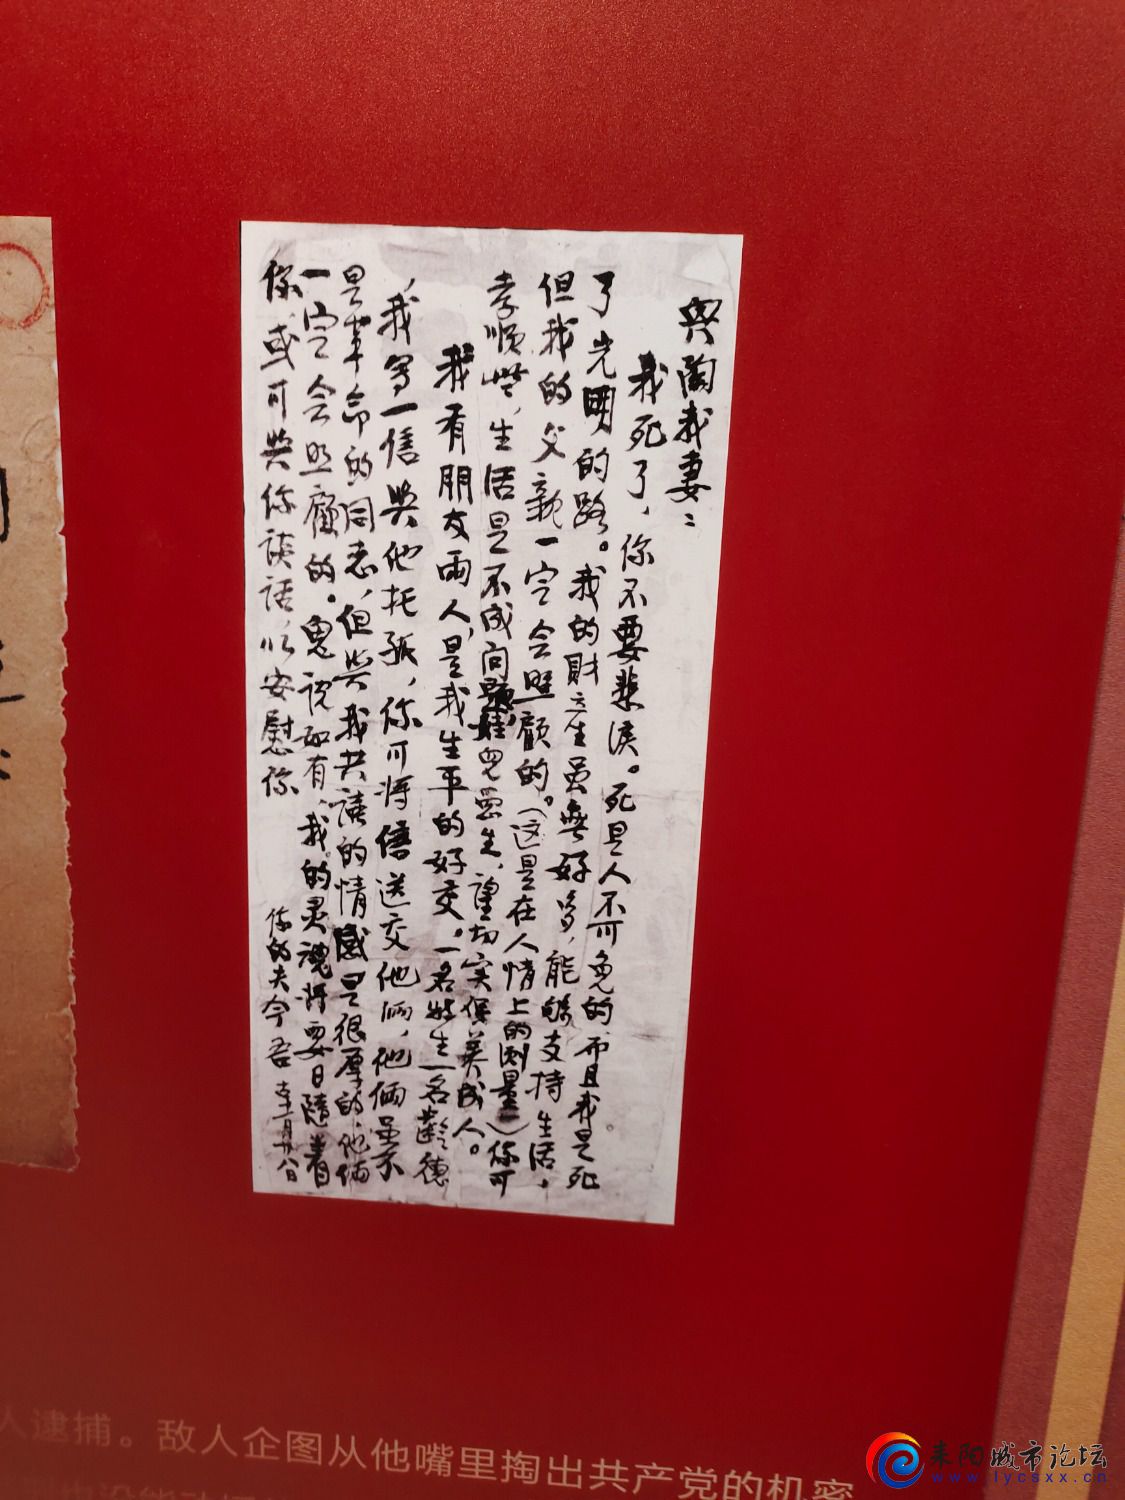 與陶我妻：
我死了，你不要悲淚。死是人不可免的，而且我是死
了光明的路。我的財產虽無好多，能夠支持生活，
但我的父親一定会照顧的。（这是在人情上的測量）你可
孝順些，生活是不成問題，娃兒出生，望切实保养成人。
我有朋友兩人，是我生平的好交。一名 一名齡德
，我写一信與他托孤，你可将信送交他俩，他俩虽不
是革命的同志，但與我共讀的情感是很厚的，他俩
一定会照顧的。鬼説如有，我的灵魂将要日隨着
你，或可與你谈話以安慰你
你的夫今吾 十一月廿八日
人逮捕。敌人企图从他嘴里掏出共产党的机密
耒阳城市论坛
www.lycsxx.cn